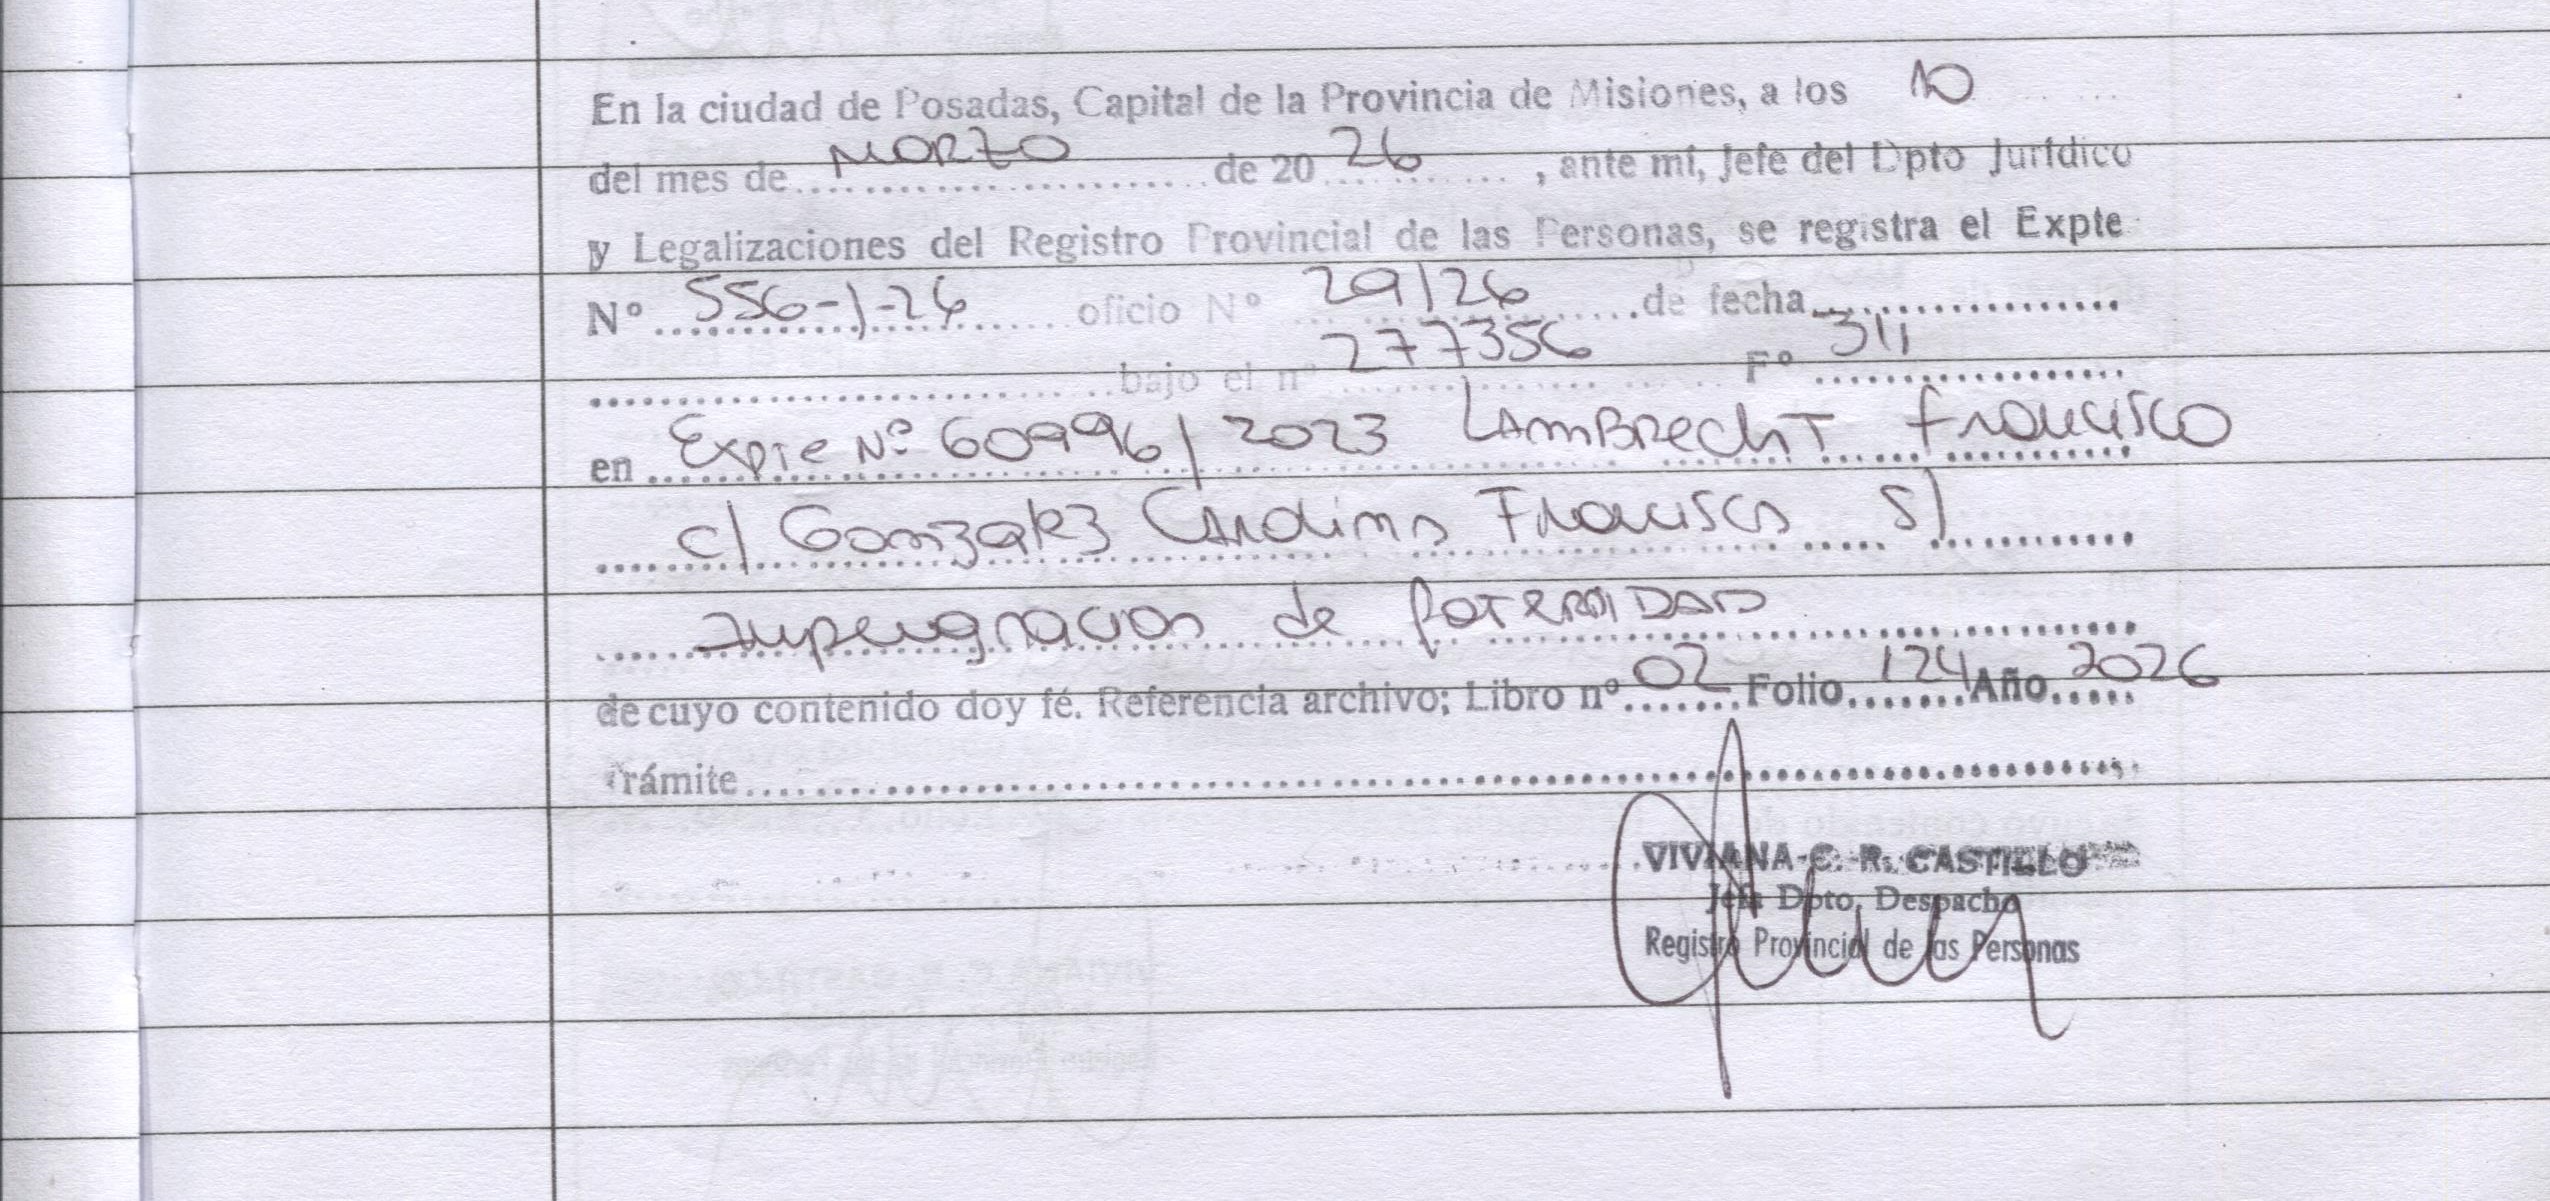 En la ciudad de Posadas, Capital de la Provincia de Misiones, a los 10
del mes de MORZO de 20 26, ante mi, Jefe del Dpto Jurídico
y Legalizaciones del Registro Provincial de las Personas, se registra el Expte
Nº 556-J-26 oficio Nº 29/26 de fecha
bajo el nº 277356 Fº 311
en Expte Nº 60996/2023 LAMBRECHT Francisco
c/ Gonzalez Francisco S/
Impugnacion de PATERNIDAD
de cuyo contenido doy fé. Referencia archivo; Libro nº 02 Folio 124 Año 2026
Trámite
VIVIANA C. R. CASTILLO
Jefa Dpto. Despacho
Registro Provincial de las Personas